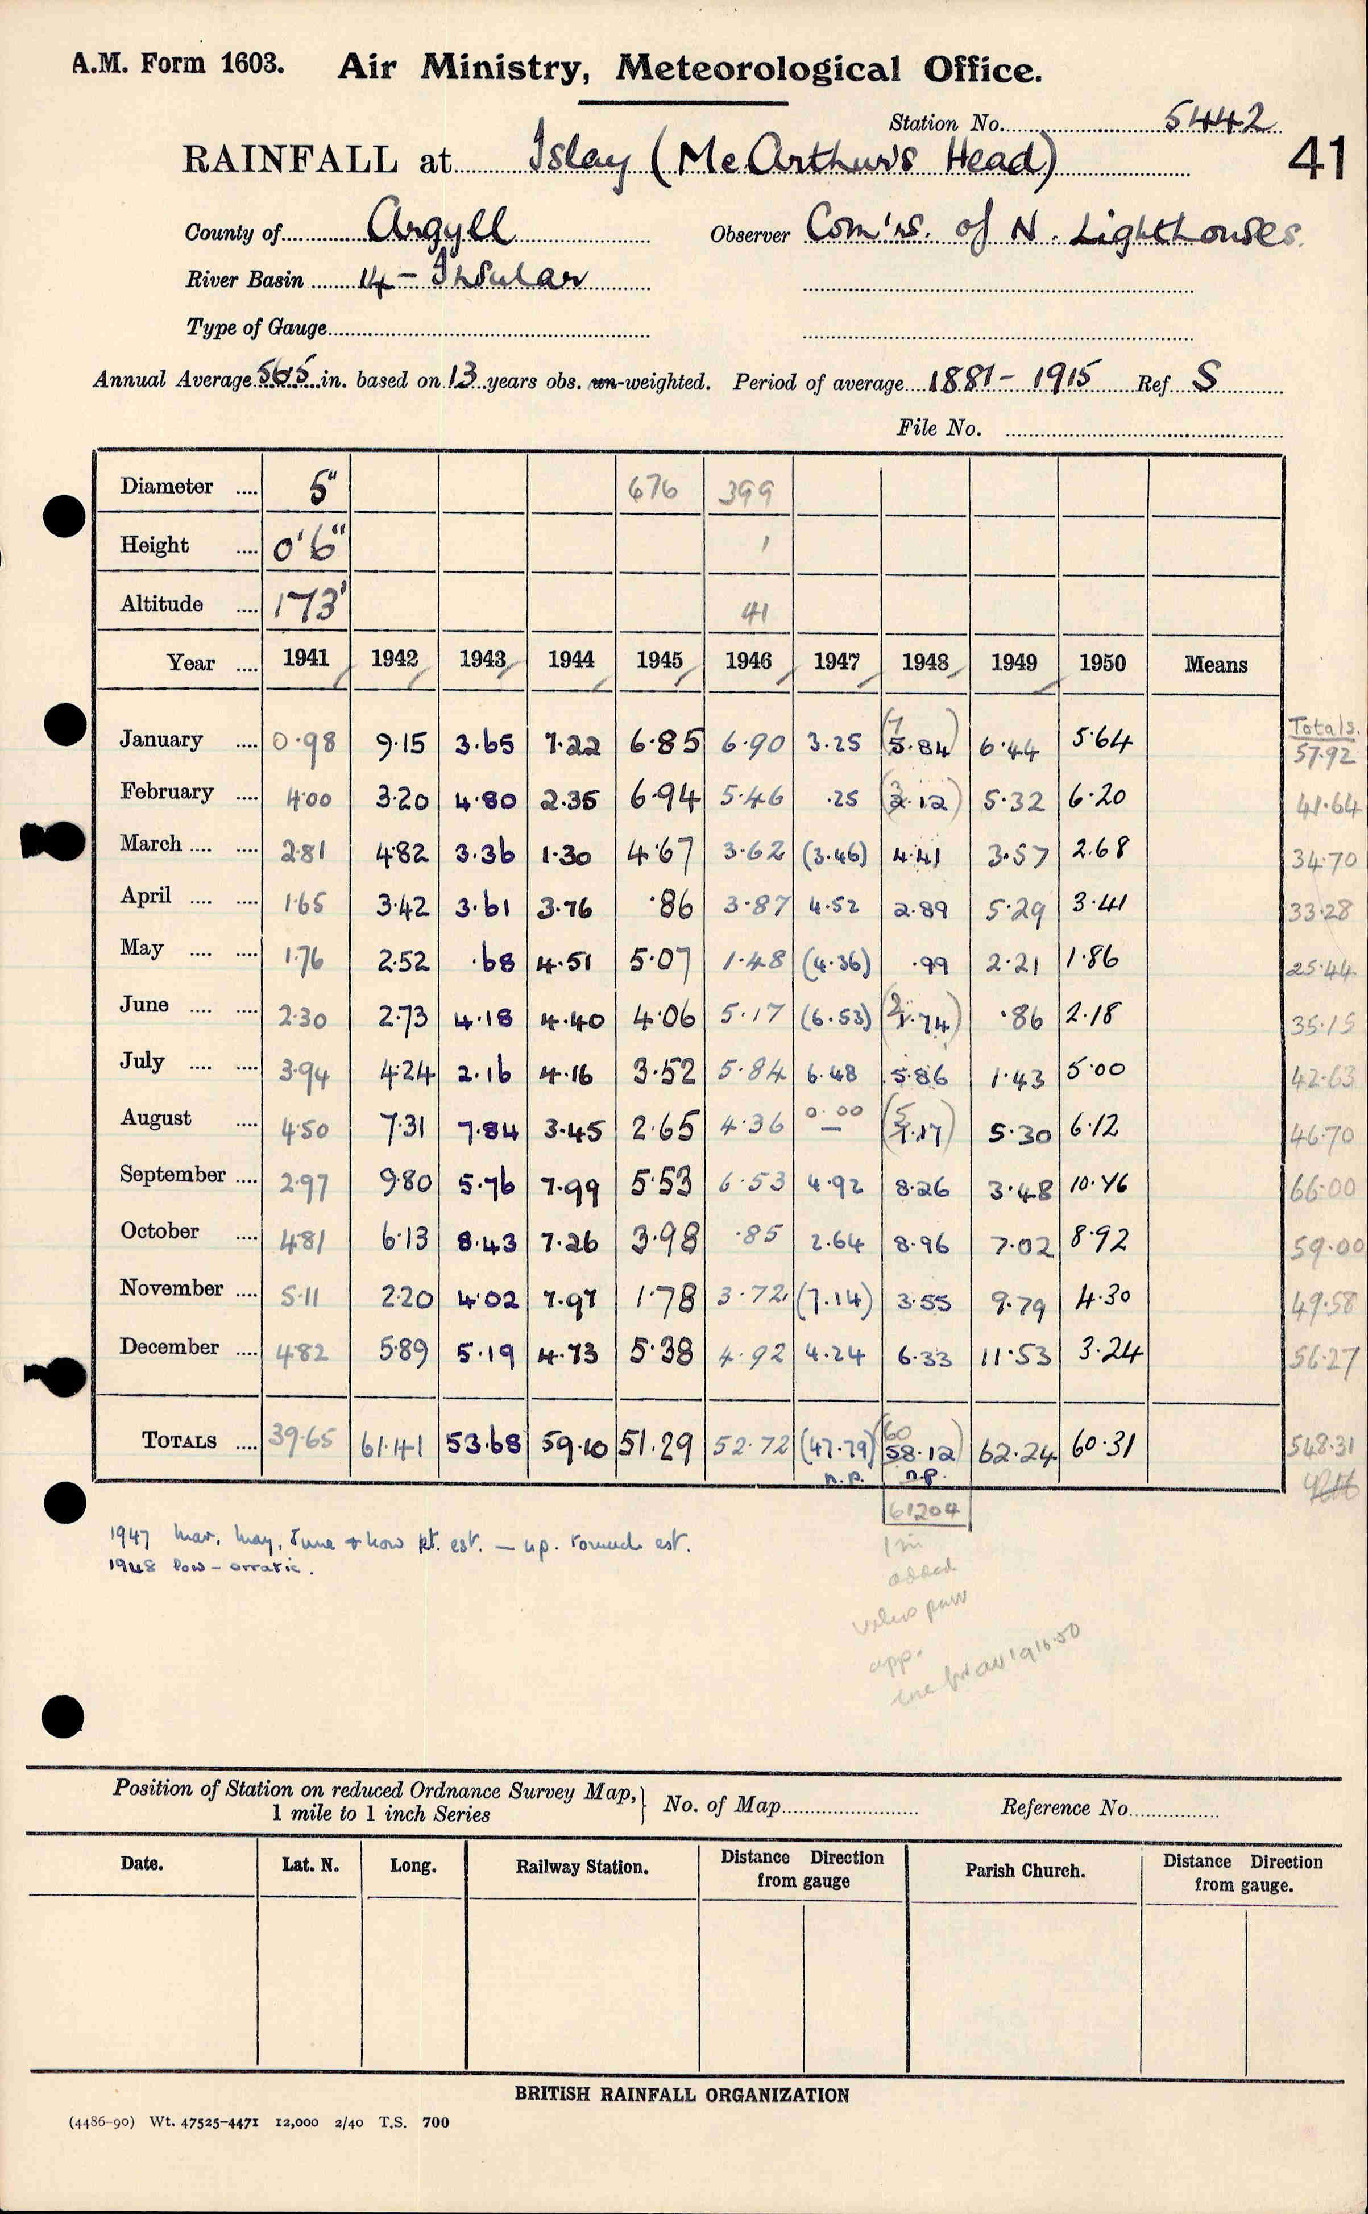 A.M. Form 1603. Air Ministry, Meteorological Office.
Station No. 5442
RAINFALL at Islay (McArthur's Head) 41
County of Argyll Observer Com'rs. of N. Lighthouses.
River Basin 14 - Insular
Type of Gauge
Annual Average 56.5 in. based on 13 years obs. un-weighted. Period of average 1881 - 1915 Ref S
File No.
Diameter .... 5" 676 399
Height .... 0'6" 1
Altitude .... 173' 41
Year .... 1941 1942 1943 1944 1945 1946 1947 1948 1949 1950 Means
Totals.
January .... 0.98 9.15 3.65 7.22 6.85 6.90 3.25 (7 5.84) 6.44 5.64 57.92
February .... 4.00 3.20 4.80 2.35 6.94 5.46 .25 (3 2.12) 5.32 6.20 41.64
March .... .... 2.81 4.82 3.36 1.30 4.67 3.62 (3.46) 4.41 3.57 2.68 34.70
April .... .... 1.65 3.42 3.61 3.76 .86 3.87 4.52 2.89 5.29 3.41 33.28
May .... .... 1.76 2.52 .68 4.51 5.07 1.48 (4.36) .99 2.21 1.86 25.44
June .... .... 2.30 2.73 4.18 4.40 4.06 5.17 (6.53) (2 1.74) .86 2.18 35.15
July .... .... 3.94 4.24 2.16 4.16 3.52 5.84 6.48 5.86 1.43 5.00 42.63
August .... 4.50 7.31 7.84 3.45 2.65 4.36 0.00 — (5 7.17) 5.30 6.12 46.70
September .... 2.97 9.80 5.76 7.99 5.53 6.53 4.92 8.26 3.48 10.76 66.00
October .... 4.81 6.13 8.43 7.26 3.98 .85 2.64 8.96 7.02 8.92 59.00
November .... 5.11 2.20 4.02 7.97 1.78 3.72 (7.14) 3.55 9.79 4.30 49.58
December .... 4.82 5.89 5.19 4.73 5.38 4.92 4.24 6.33 11.53 3.24 56.27
TOTALS .... 39.65 61.41 53.68 59.10 51.29 52.72 (47.79) (60 58.12) 62.24 60.31 548.31
n.p. n.p.
61204
1947 Mar, May, June & Nov pt. est. — n.p. est.
1948 low - erratic.
1 in
added
app.
Position of Station on reduced Ordnance Survey Map, } No. of Map Reference No.
1 mile to 1 inch Series
Date. Lat. N. Long. Railway Station. Distance Direction from gauge Parish Church. Distance Direction from gauge.
BRITISH RAINFALL ORGANIZATION
(4486-90) Wt. 47525-4471 12,000 2/40 T.S. 700